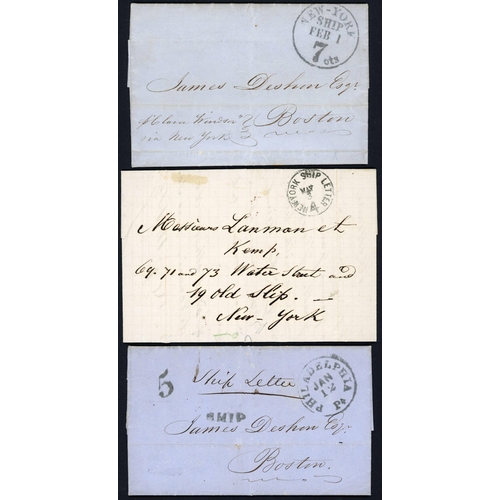 NEW-YORK
SHIP
FEB 1
7 cts
James Deshon Esqr
via New York
Boston
NEW YORK SHIP LETTER
MAY
Messieurs Lanman et
Kemp,
69. 71 and 73 Water Street and
19 old Slip.
New-York
5
Ship Letter
PHILADELPHIA
JAN
12
Pa
SHIP
James Deshon Esqr
Boston.